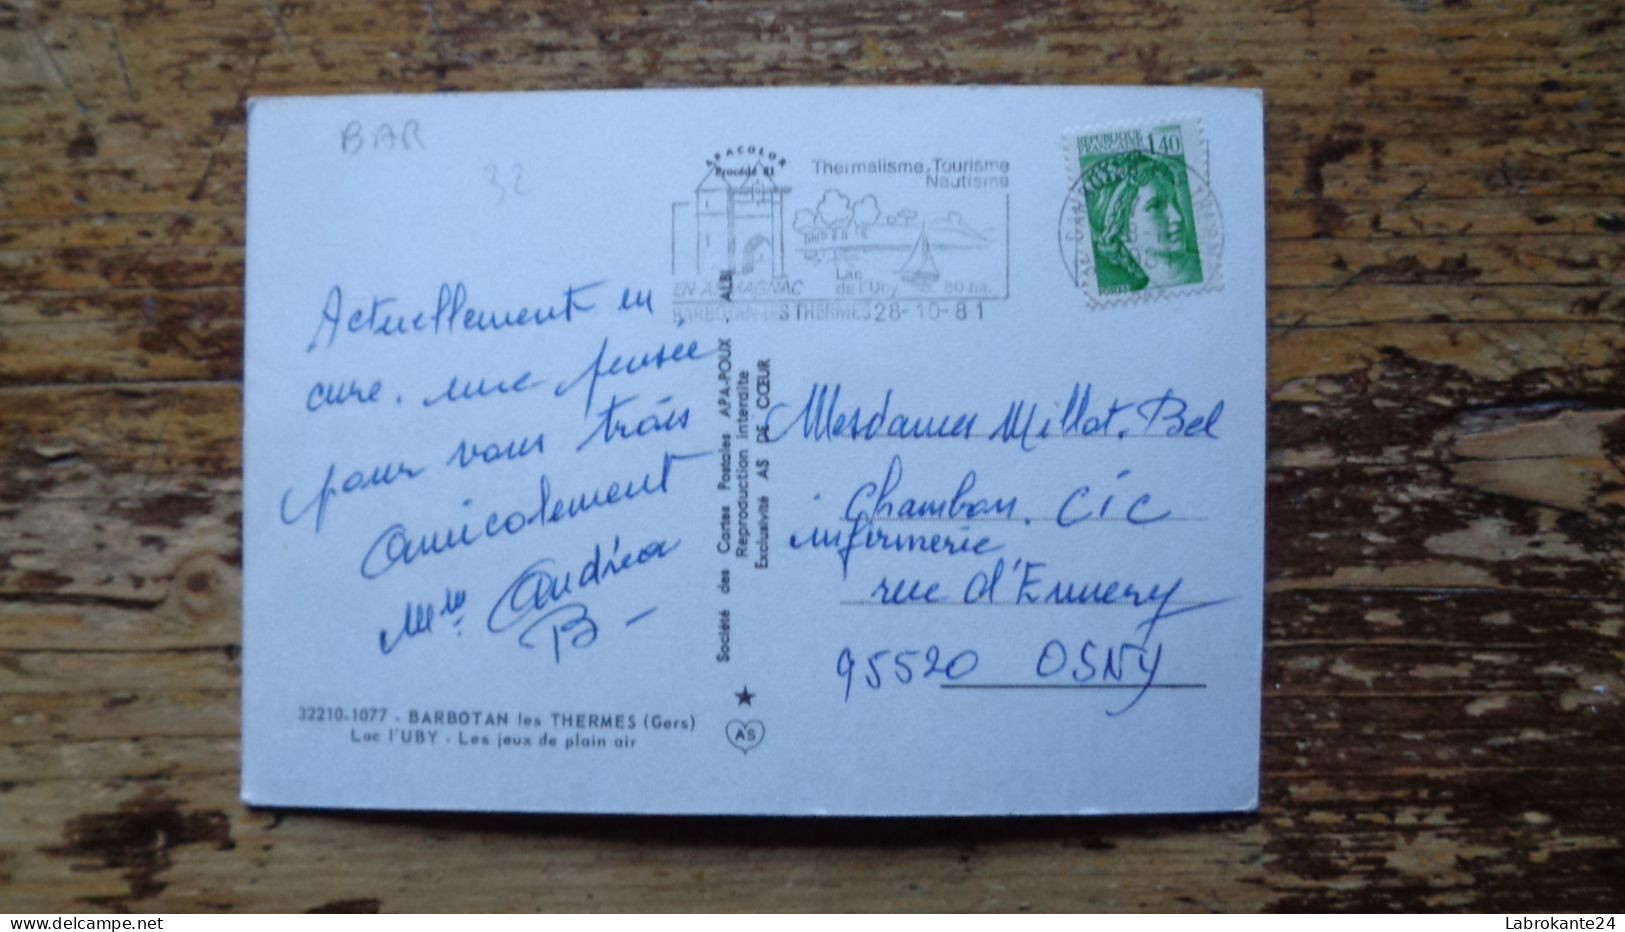 BAR
32
APACOLOR
Procédé 81
Thermalisme, Tourisme
Nautisme
Lac
de l'Uby 80 ha.
EN ARMAGNAC
BARBOTAN-LES THERMES 28-10-81
REPUBLIQUE
FRANÇAISE 1,40
Actuellement en
cure. une pensée
pour vous trois
Amicalement
Mme Andréa
B-
32210-1077 - BARBOTAN les THERMES (Gers)
Lac l'UBY - Les jeux de plain air
Société des Cartes Postales APA-POUX - ALBI
Reproduction interdite
Exclusivité AS DE CŒUR
AS
Mesdames Millot. Bel
Chambon. CIC
infirmerie
rue d'Ennery
95520 OSNY
Labrokante24